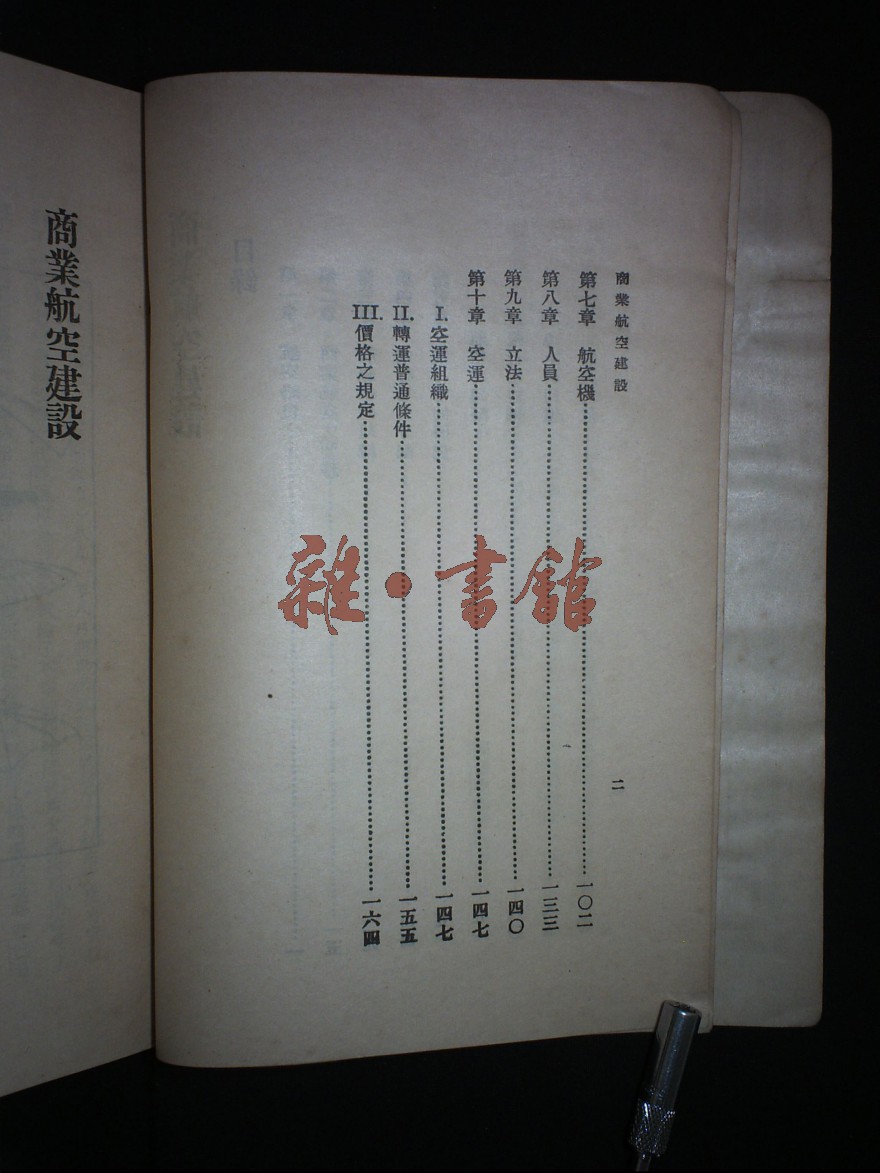 商業航空建設
二
第七章 航空機……一〇二
第八章 人員……一三三
第九章 立法……一四〇
第十章 空運……一四七
I. 空運組織……一四七
II. 轉運普通條件……一五五
III. 價格之規定……一六四
商業航空建設
雜·書館